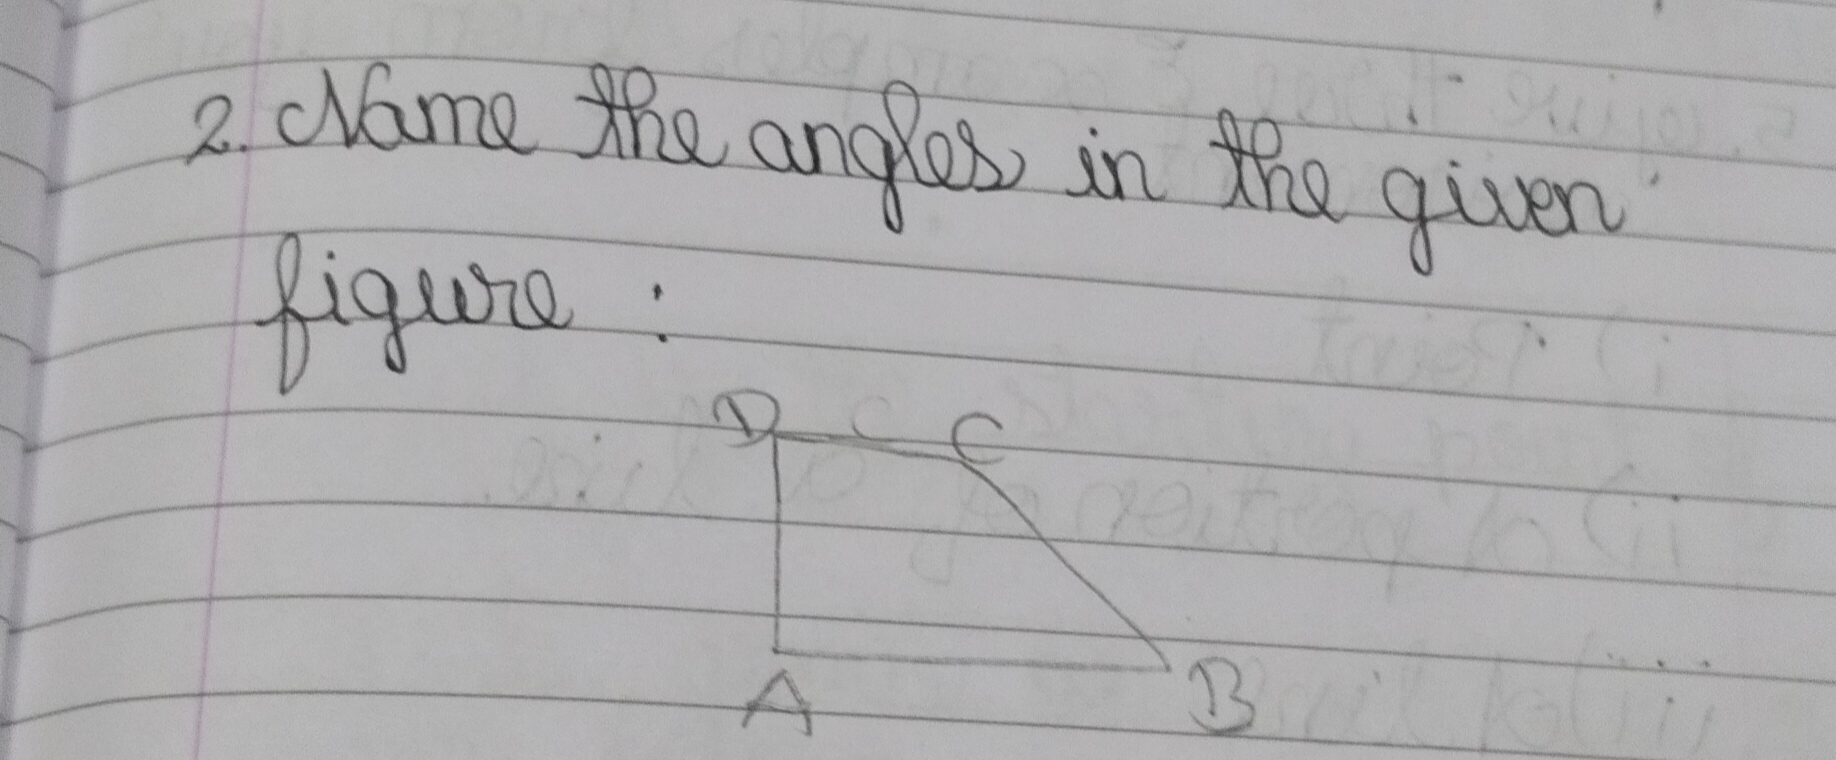 2. Name the angles in the given
figure :
D C
A B